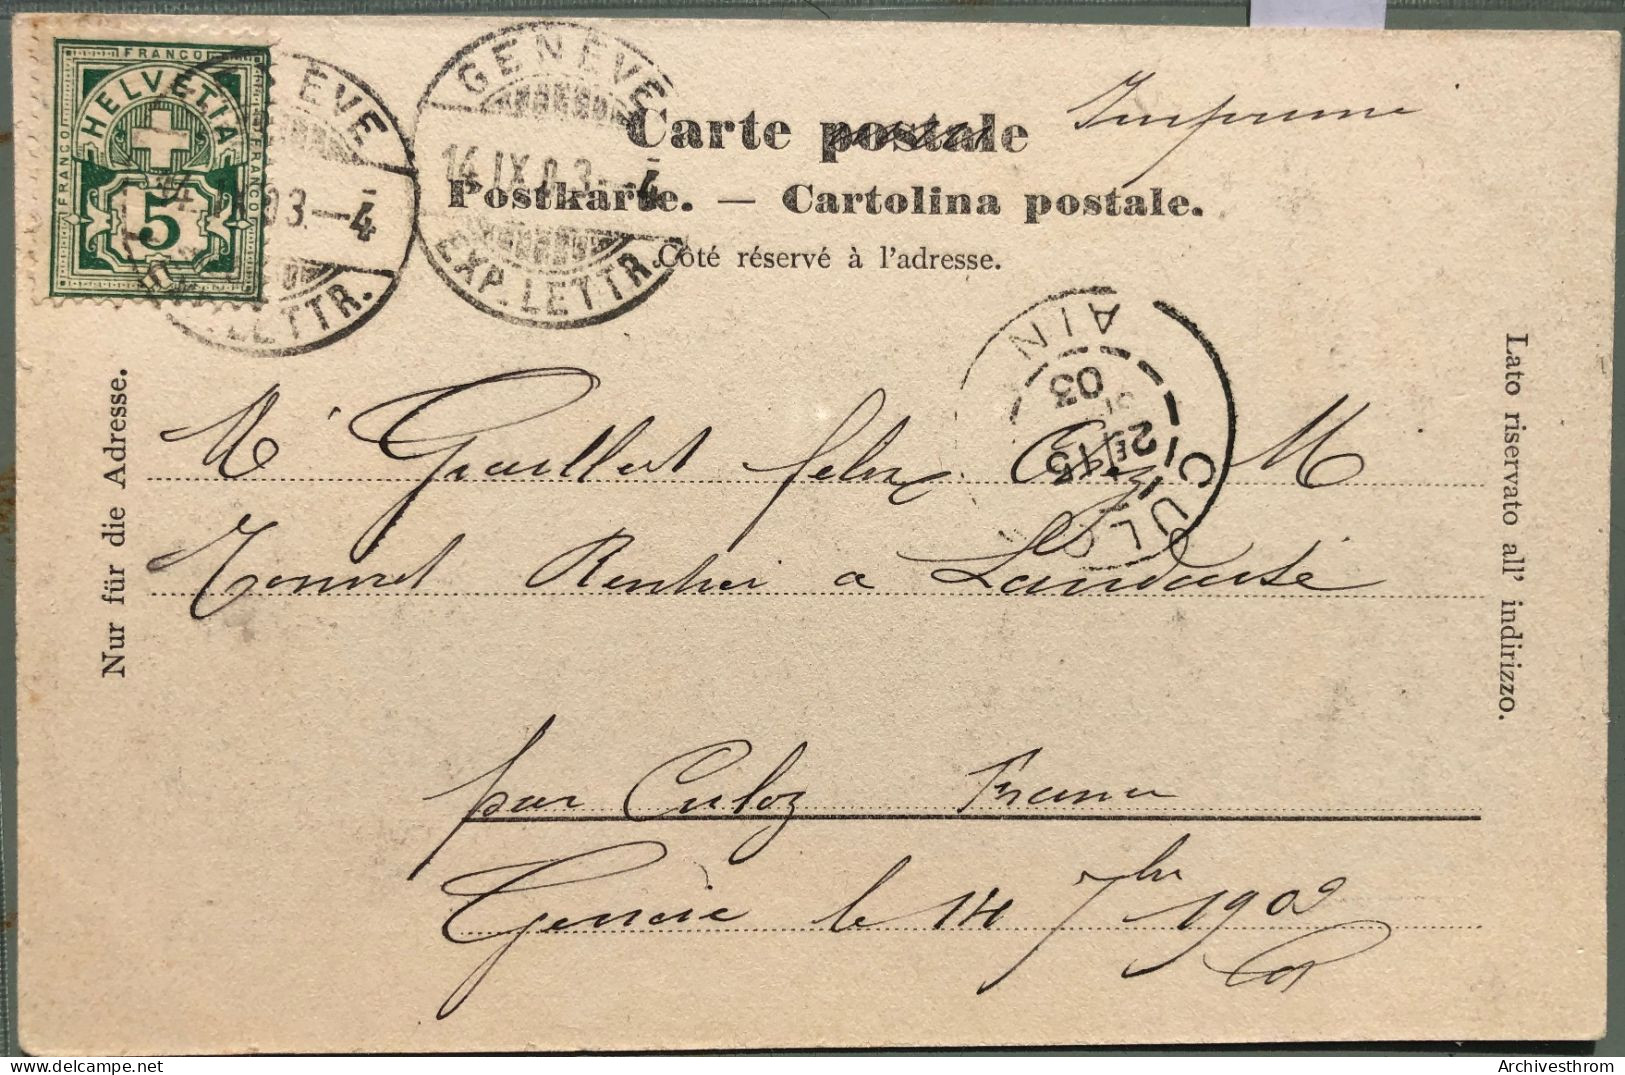 FRANCO
HELVETIA
FRANCO
FRANCO
5
GENÈVE
14.IX.03.–4
EXP. LETTR.
GENÈVE
14.IX.03.–4
EXP. LETTR.
Carte postale Imprimé
Postkarte. — Cartolina postale.
Côté réservé à l'adresse.
Nur für die Adresse.
Lato riservato all' indirizzo.
CULOZ
2E/15
03
AIN
Mr felix Chez M
Rentier a Landaise
par Culoz France
Genève le 14 7bre 1903
Archivesthrom